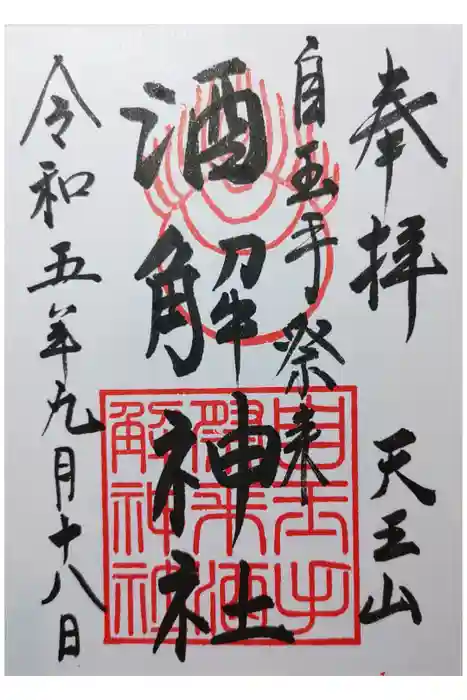 奉拝 天王山
自玉手祭来
酒解神社
令和五年九月十八日
自玉手
祭来酒
解神神